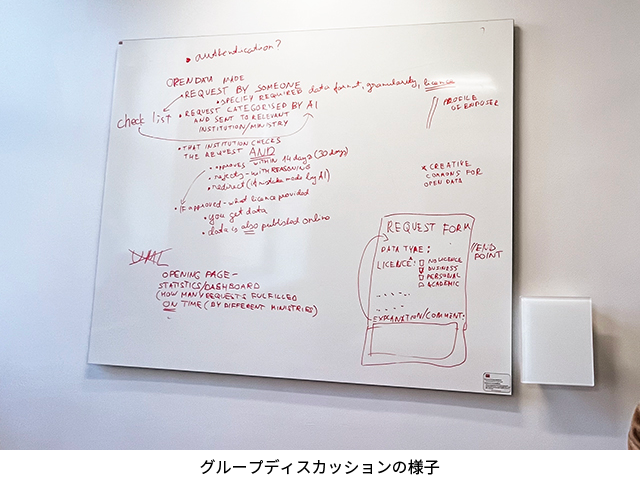 • authentication?
OPEN DATA MADE
• REQUEST BY SOMEONE
• SPECIFY REQUIRED data format, granularity, licence
check list
• REQUEST CATEGORISED BY AI
AND SENT TO RELEVANT
INSTITUTION/MINISTRY
PROFILE
OF ENDUSER
• THAT INSTITUTION CHECKS
THE REQUEST AND
• approves WITHIN 14 days (30 days)
• rejects - WITH REASONING
• redirect (if mistake made by AI)
* CREATIVE
COMMONS FOR
OPEN DATA
• IF approved - what licence provided
• you get data
• data is also published online
REQUEST FORM
DATA TYPE:
LICENCE:
NO LICENCE
BUSINESS
PERSONAL
ACADEMIC
EXPLANATION/COMMENT:
//END
POINT
OPENING PAGE -
STATISTICS/DASHBOARD
(HOW MANY REQUESTS FULFILLED
ON TIME (BY DIFFERENT MINISTRIES)
グループディスカッションの様子